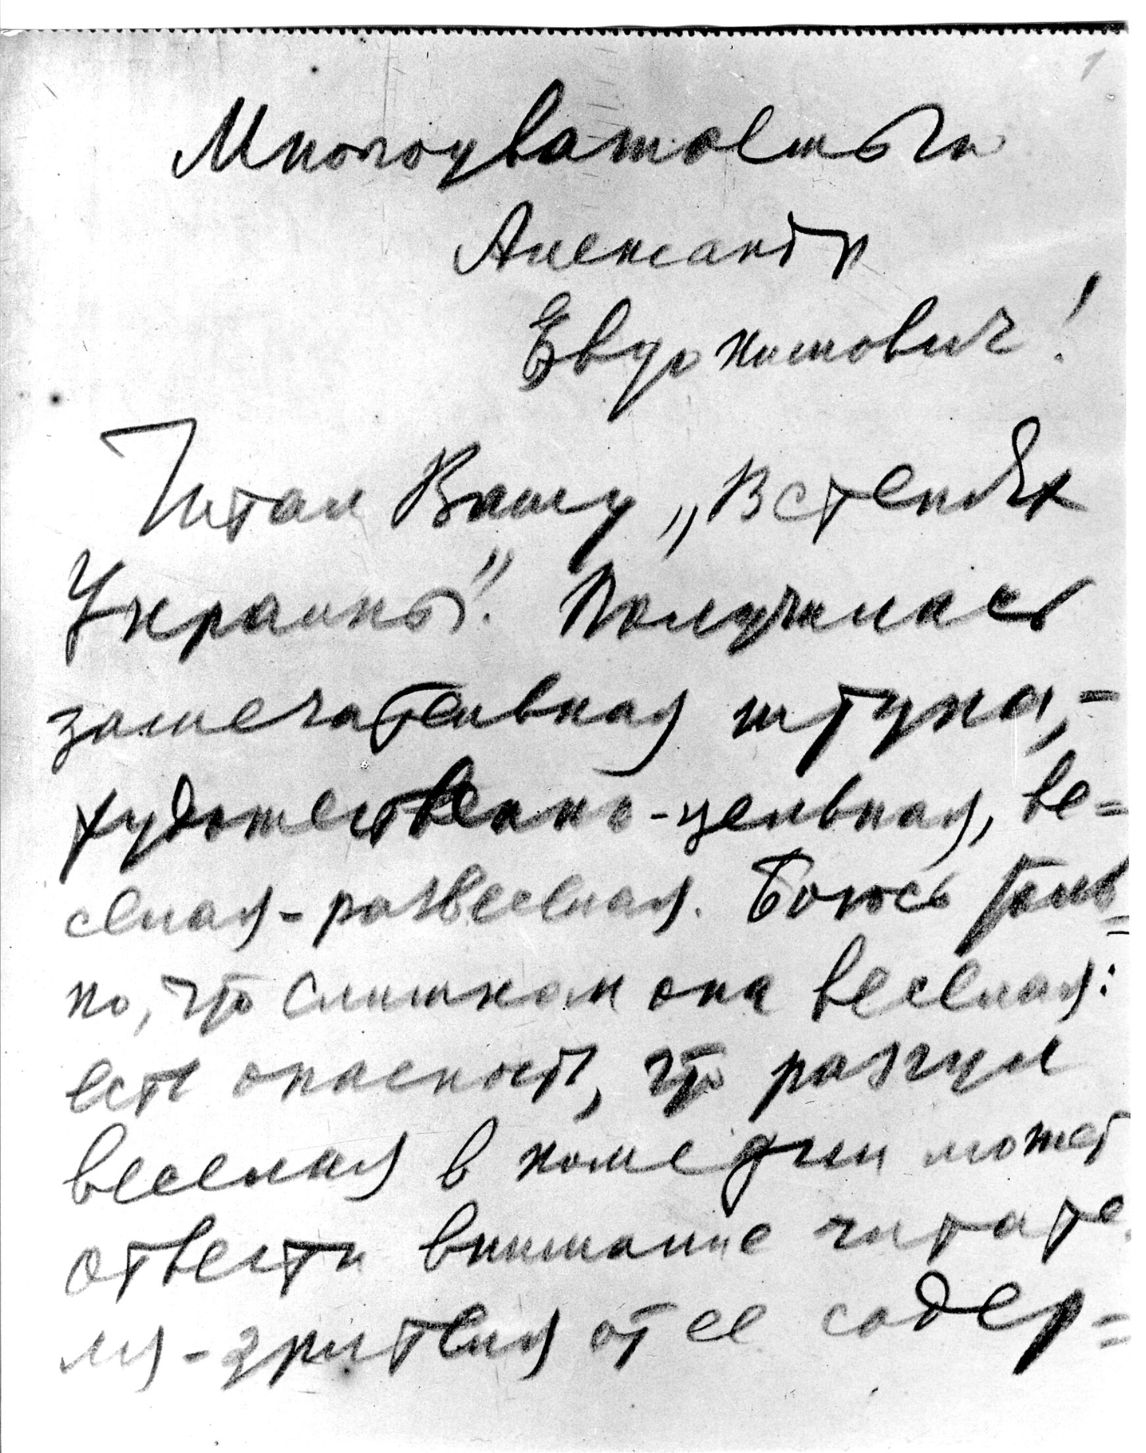 1
Многоуважаемый
Александр
Евдокимович!
Читал Вашу „В степях
Украины“. Получилась
замечательная штука, –
художественно-цельная, ве=
селая-развеселая. Боюсь толь=
ко, что слишком она веселая:
есть опасность, что разгул
веселья в комедии может
отвести внимание читате
ля-зрителя от ее содер=